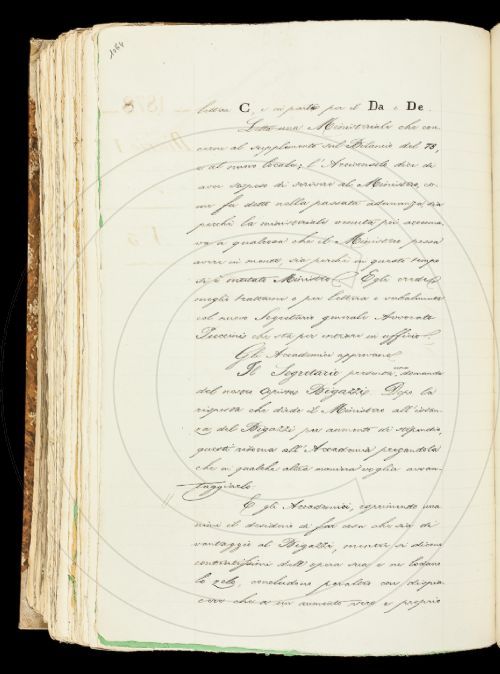 1084
lettera C, e in parte per il Da e De.
Letta una Ministeriale che con-
cerne al supplemento sul Bilancio del 78,
e al nuovo locale; l'Arciconsolo dice di
aver sospeso di scrivere al Ministero, co-
me fu detto nella passata adunanza, sia
perchè la ministeriale venuta poi accenna-
va a qualcosa che il Ministero possa
avere in mente, sia perchè in questo tempo
si è mutato Ministro. Egli crede
meglio trattare e per lettera e verbalmente
col nuovo Segretario generale Avvocato
Puccini che sta per entrare in ufficio.
Gli Accademici approvano.
Il Segretario presenta una domanda
del nostro Bigazzi. Dopo la
risposta che diede il Ministero all'istan-
za del Bigazzi per aumento di stipendio,
questi ritorna all'Accademia pregandola
che in qualche altra maniera voglia avvan-
taggiarlo.
E gli Accademici, esprimendo una
nimi il desiderio di far cosa che sia di
vantaggio al Bigazzi, mentre si dicono
contentissimi dell'opera sua e ne lodano
lo zelo, concludono peraltro con dispia-
cere che a un aumento vero e proprio